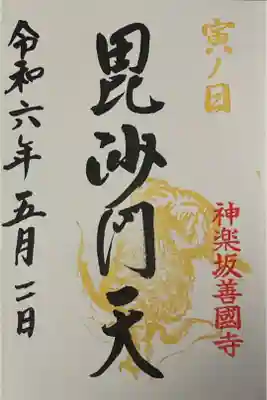 寅ノ日
神楽坂善國寺
毘沙門天
令和六年五月二日